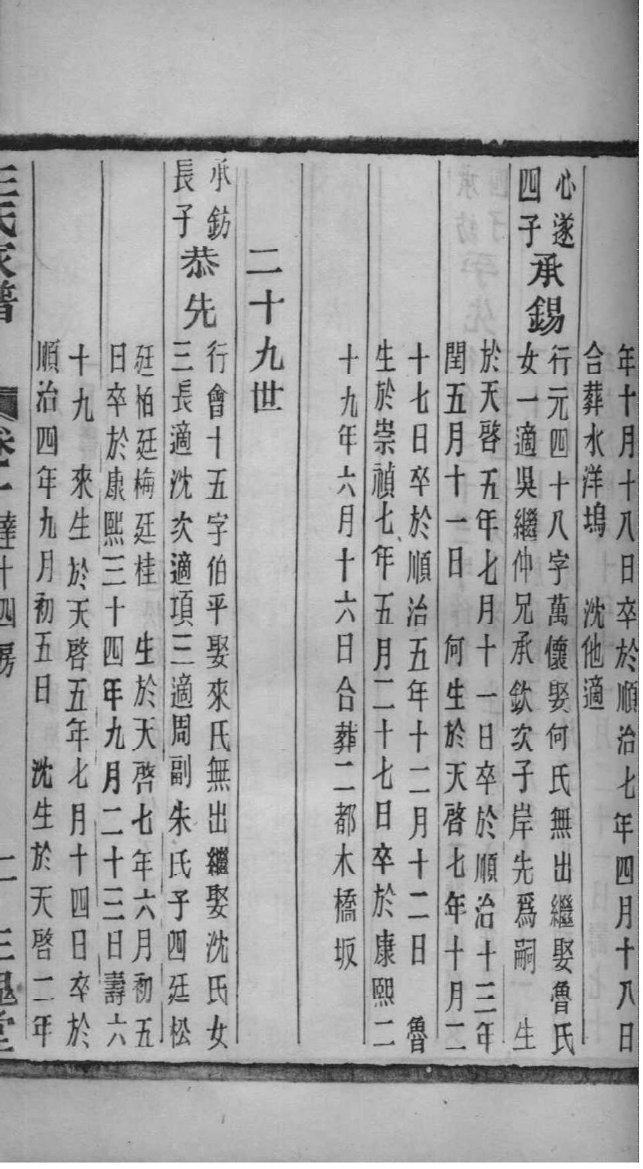 年十月十八日卒於順治七年四月十八日
合葬水洋塢　沈他適
心遂
四子
承錫
行元四十八字萬懷娶何氏無出繼娶魯氏
女一適吳繼仲兄承欽次子岸先爲嗣　生
於天啓五年七月十一日卒於順治十三年
閏五月十一日　何生於天啓七年十月二
十七日卒於順治五年十二月十二日　魯
生於崇禎七年五月二十七日卒於康熙二
十九年六月十六日合葬二都木橋坂
二十九世
承鈁
長子
恭先
行會十五字伯平娶來氏無出繼娶沈氏女
三長適沈次適項三適周副朱氏子四廷松
廷栢廷梅廷桂　生於天啓七年六月初五
日卒於康熙三十四年九月二十三日壽六
十九　來生於天啓五年七月十四日卒於
順治四年九月初五日　沈生於天啓二年
王氏家譜　卷　達十四房　二　三槐堂